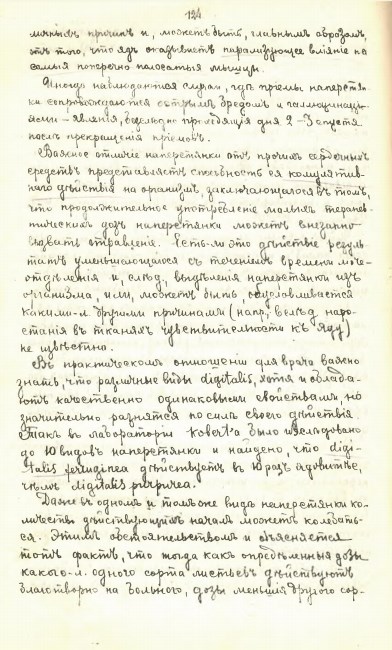 124
мѣчныхъ причинъ и, можетъ быть, главнымъ образомъ,
отъ того, что ядъ оказываетъ парализующее вліяніе на
самыя поперечно полосатыя мышцы.
Иногда наблюдаются случаи, гдѣ пріемы наперстян-
ки сопровождаются острымъ бредомъ и галлюцинаці-
ями – явленія, проходящія дня 2–3 спустя
послѣ прекращенія пріемовъ.
Важное отличіе наперстянки отъ прочихъ сердечныхъ
средствъ представляетъ способность ея кумулятив-
наго дѣйствія на организмъ, заключающаяся въ томъ,
что продолжительное употребленіе малыхъ терапев-
тическихъ дозъ наперстянки можетъ внезапно
вызвать отравленіе. Есть-ли это дѣйствіе резуль-
татъ уменьшающагося съ теченіемъ времени моче-
отдѣленія и, слѣд., выдѣленія наперстянки изъ
организма, или, можетъ быть, обусловливается
какими-л. другими причинами (напр., вслѣд. наро-
станія въ тканяхъ чувствительности къ яду)
не извѣстно.
Въ практическомъ отношеніи для врача важно
знать, что различные виды digitalis, хотя и облада-
ютъ качественно одинаковыми свойствами, но
значительно разнятся по силѣ своего дѣйствія.
Такъ въ лабораторіи Kobert'а было изслѣдовано
до 10 видовъ наперстянки и найдено, что digi-
talis feruginea дѣйствуетъ въ 10 разъ ядовитѣе,
чѣмъ digitalis purpurea.
Даже въ одномъ и томъ-же видѣ наперстянки ко-
личество дѣйствующихъ началъ можетъ колебать-
ся. Этимъ обстоятельствомъ и объясняется
тотъ фактъ, что тогда какъ опредѣленныя дозы
какого-л. одного сорта листьевъ дѣйствуютъ
благотворно на больного, дозы меньшія другого сор-